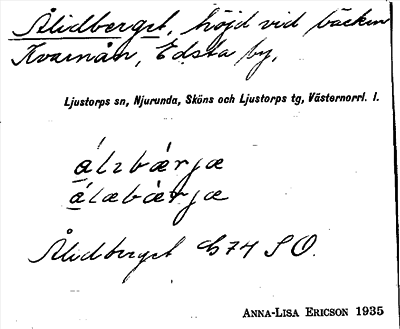 Ålidberget, höjd vid bäcken
Kvarnån, Edsta by,
Ljustorps sn, Njurunda, Sköns och Ljustorps tg, Västernorrl. l.
álɩbærjæ
álæbærjæ
Ålidberget G74 SO.
ANNA-LISA ERICSON 1935